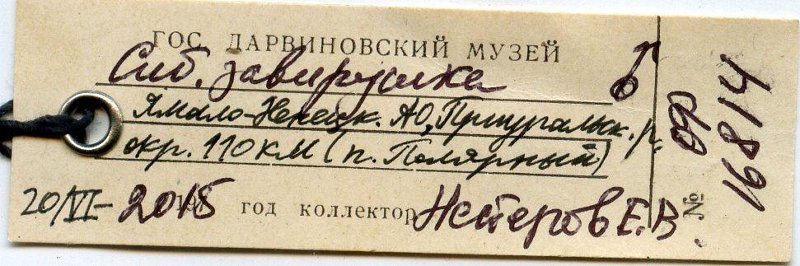 ГОС ДАРВИНОВСКИЙ МУЗЕЙ
Сиб. завирушка ♂
Ямало-Ненецк. АО, Приуральск. р-н,
окр. 110 км (п. Полярный)
20/VI-2015 год коллектор Нестеров Е.В.
№ ОФ 16814